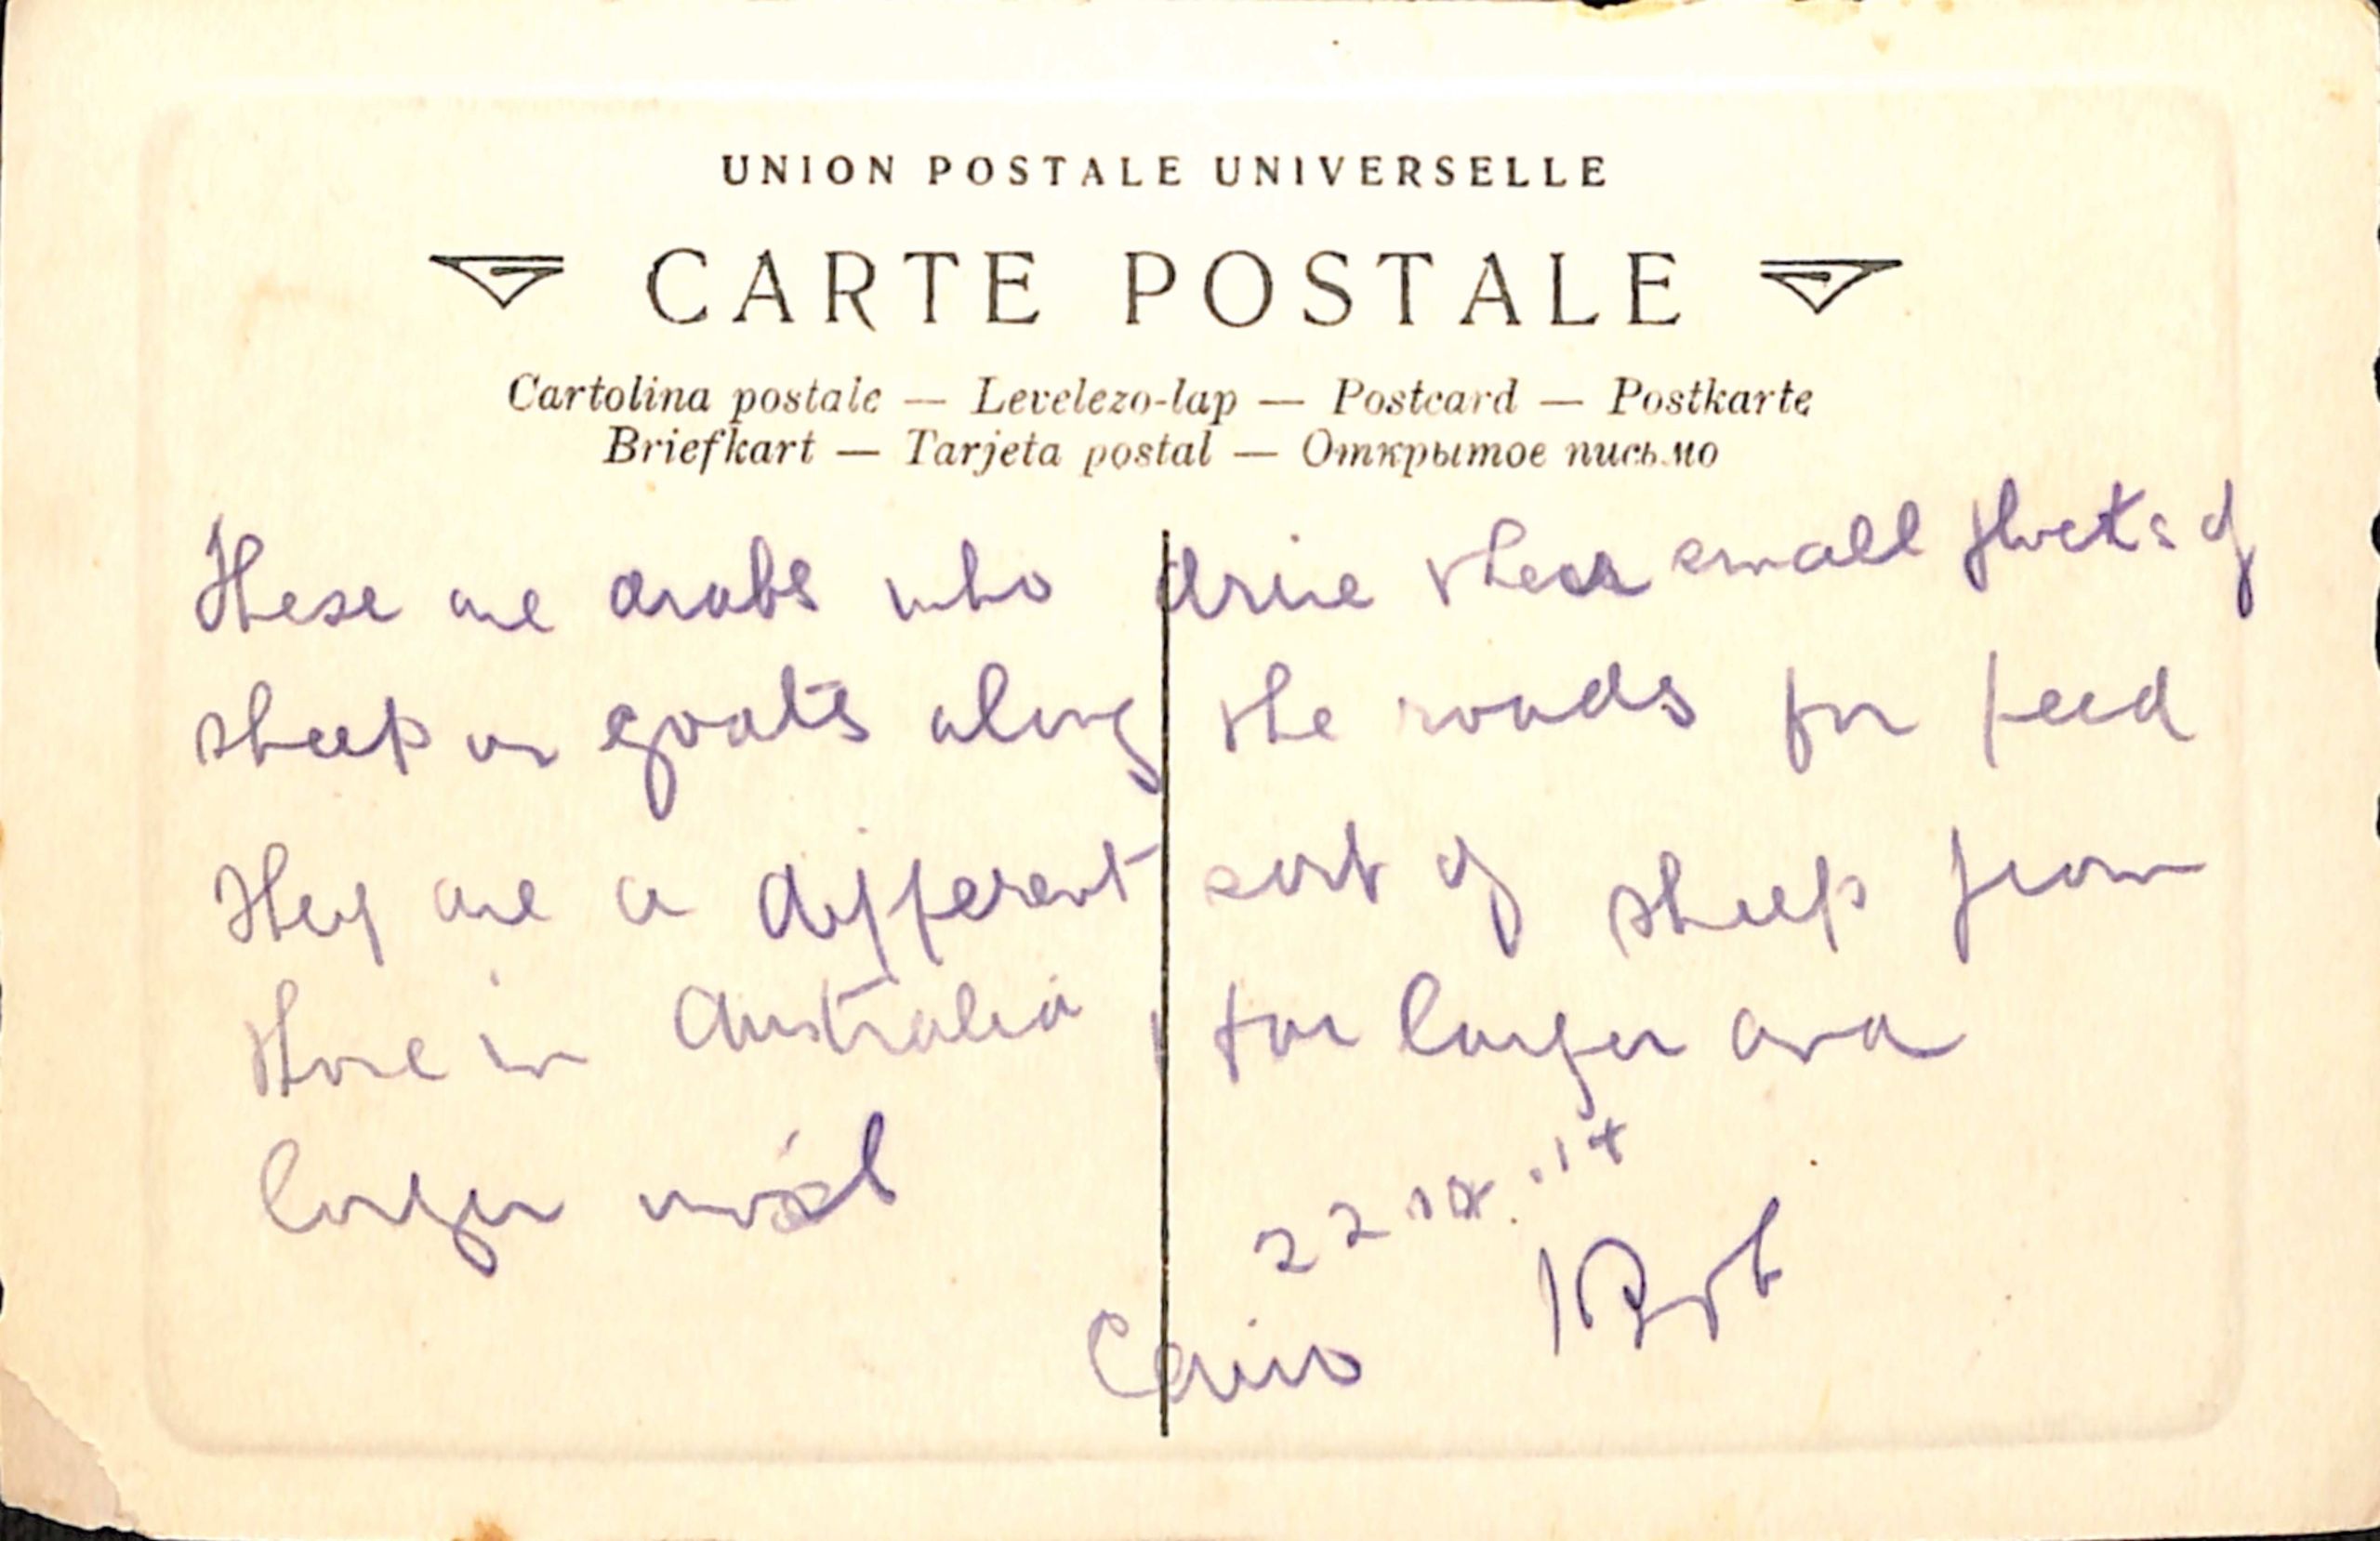 UNION POSTALE UNIVERSELLE
CARTE POSTALE
Cartolina postale — Levelezo-lap — Postcard — Postkarte
Briefkart — Tarjeta postal — Открытое письмо
These are arabs who drive their small flocks of
sheep or goats along the roads for feed
They are a different sort of sheep from
those in Australia, far larger and
larger wool
22 .14
Bob
Cairo